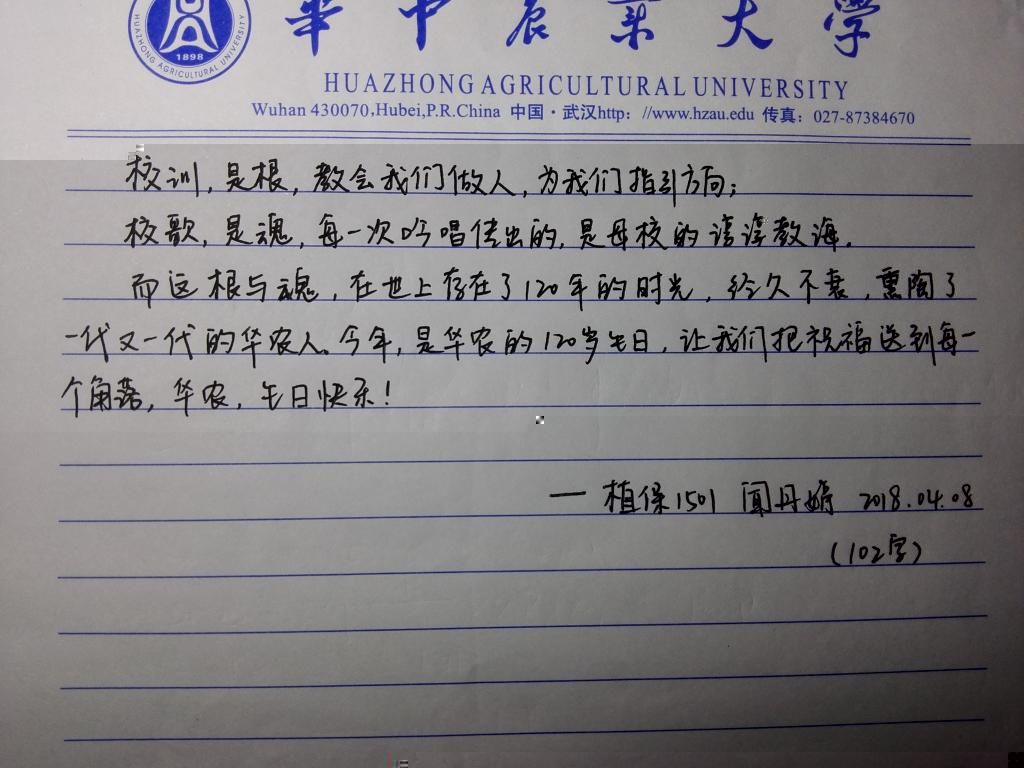 HUAZHONG AGRICULTURAL UNIVERSITY
1898
華中农业大学
HUAZHONG AGRICULTURAL UNIVERSITY
Wuhan 430070,Hubei,P.R.China 中国·武汉http: //www.hzau.edu 传真: 027-87384670
校训,是根,教会我们做人,为我们指引方向;
校歌,是魂,每一次吟唱传出的,是母校的谆谆教海.
而这根与魂,在世上存在了120年的时光,经久不衰,熏陶了
一代又一代的华农人。今年,是华农的120岁生日,让我们把祝福送到每一
个角落,华农,生日快乐!
— 植保1501 闻丹婷 2018.04.08
(102字)